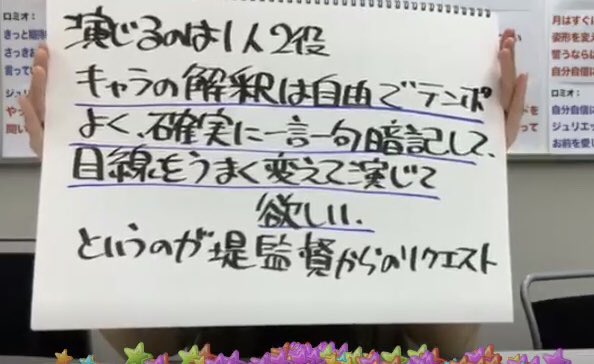 演じるのは1人2役
キャラの解釈は自由でテンポ
よく、確実に一言一句暗記して、
目線をうまく変えて演じて
欲しい.
というのが堤監督からのリクエスト
ロミオ:
きっと
さっきお
言ってい
ジュリ
やっ
問い
月はすぐに
姿形を変え
誓うならば
自分自信に
ロミオ:
自分自信に
ジュリエッ
お前を愛し